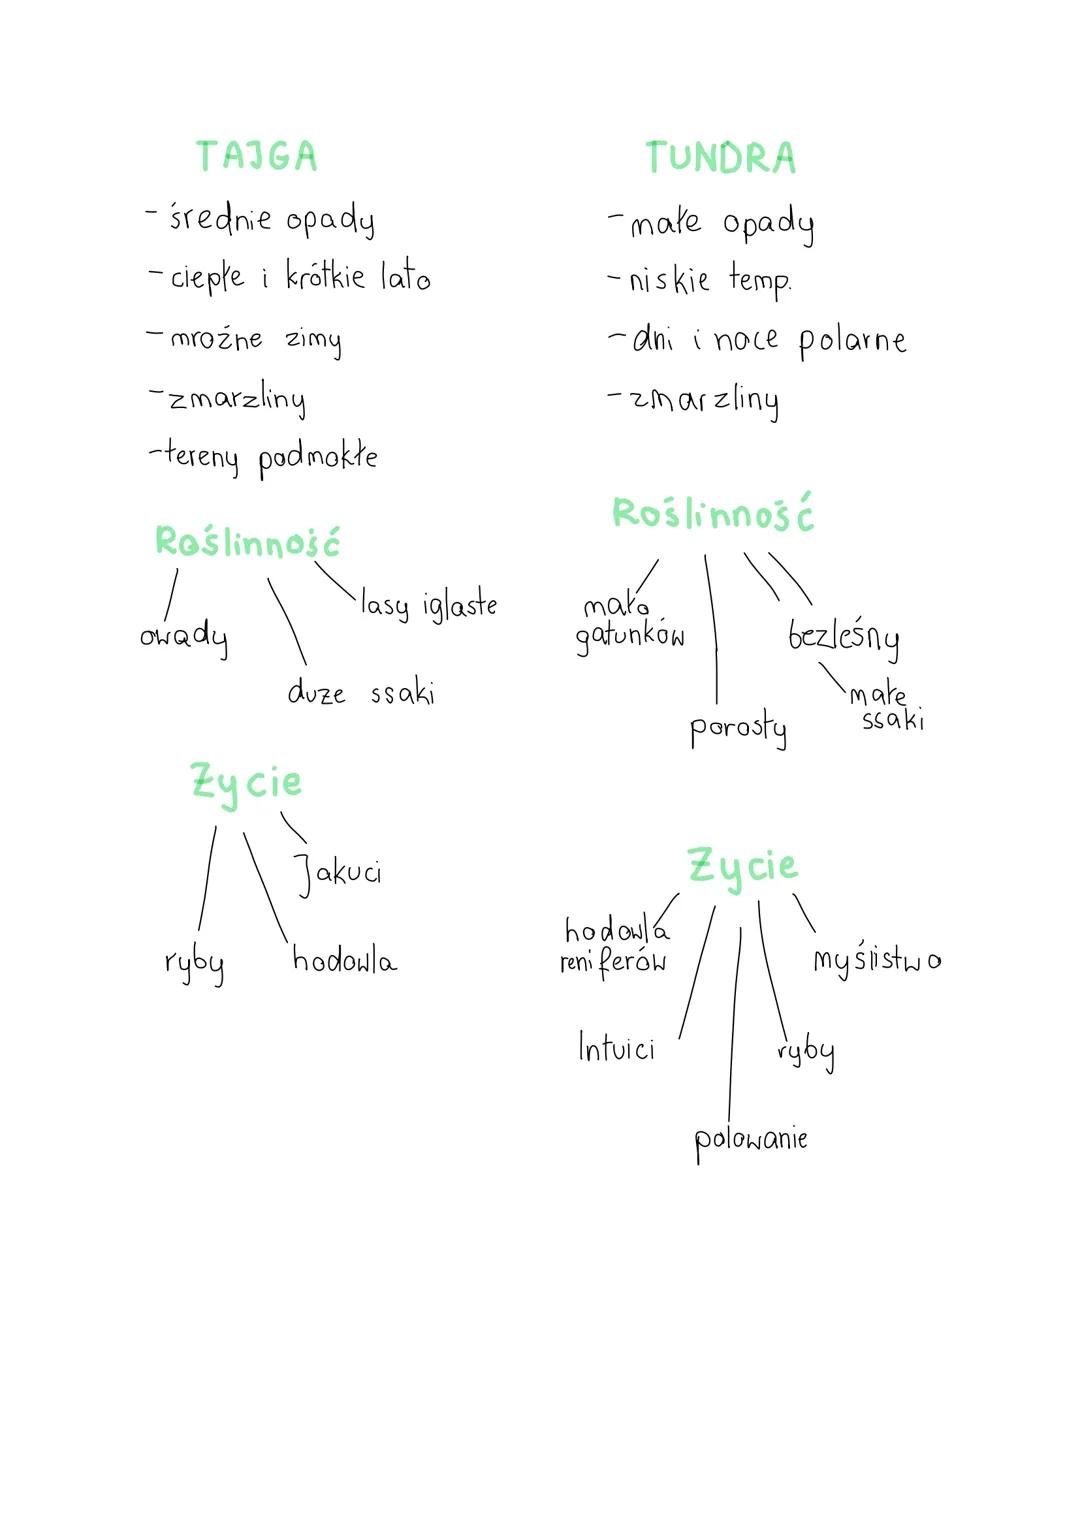 TAJGA
- średnie opady
- ciepłe i krótkie lato
- mroźne zimy
- zmarzliny
- tereny podmokłe
Roślinność
owady
duże ssaki
lasy iglaste
Życie
ryby
hodowla
Jakuci
TUNDRA
- małe opady
- niskie temp.
- dni i noce polarne
- zmarzliny
Roślinność
mało
gatunków
porosty
bezleśny
małe
ssaki
Życie
hodowla
reniferów
Intuici
polowanie
ryby
myślistwo